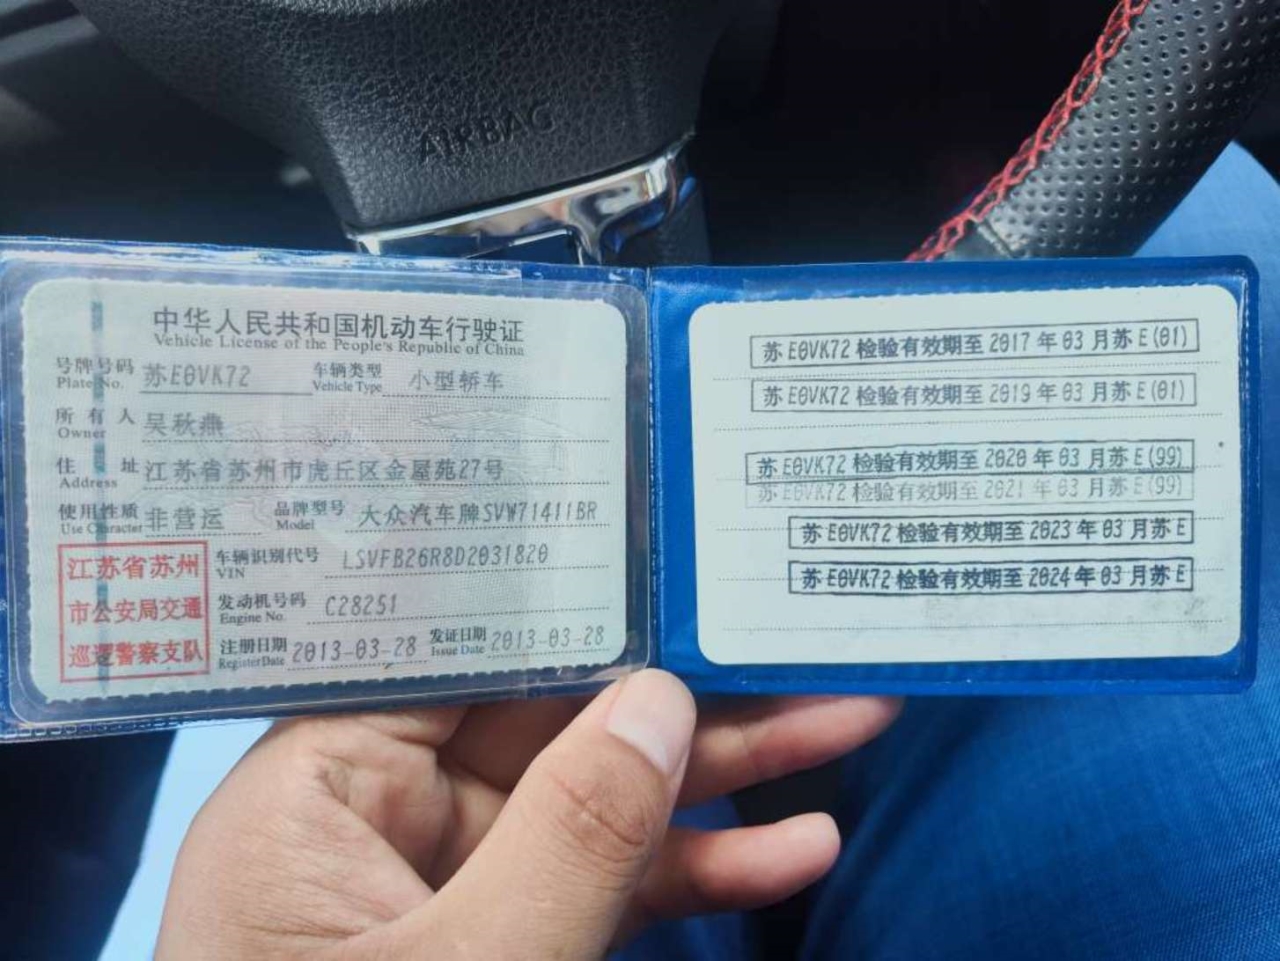 AIRBAG
中华人民共和国机动车行驶证
Vehicle License of the People's Republic of China
号牌号码 苏E0VK72 车辆类型 小型轿车
Plate No. Vehicle Type
所有人 吴秋燕
Owner
住址 江苏省苏州市虎丘区金屋苑27号
Address
使用性质 非营运 品牌型号 大众汽车牌SVW71411BR
Use Character Model
江苏省苏州
市公安局交通
巡逻警察支队
车辆识别代号 LSVFB26R8D2031820
VIN
发动机号码 C28251
Engine No.
注册日期 2013-03-28 发证日期 2013-03-28
Register Date Issue Date
苏E0VK72检验有效期至2017年03月苏E(01)
苏E0VK72检验有效期至2019年03月苏E(01)
苏E0VK72检验有效期至2020年03月苏E(99)
苏E0VK72检验有效期至2021年03月苏E(99)
苏E0VK72检验有效期至2023年03月苏E
苏E0VK72检验有效期至2024年03月苏E